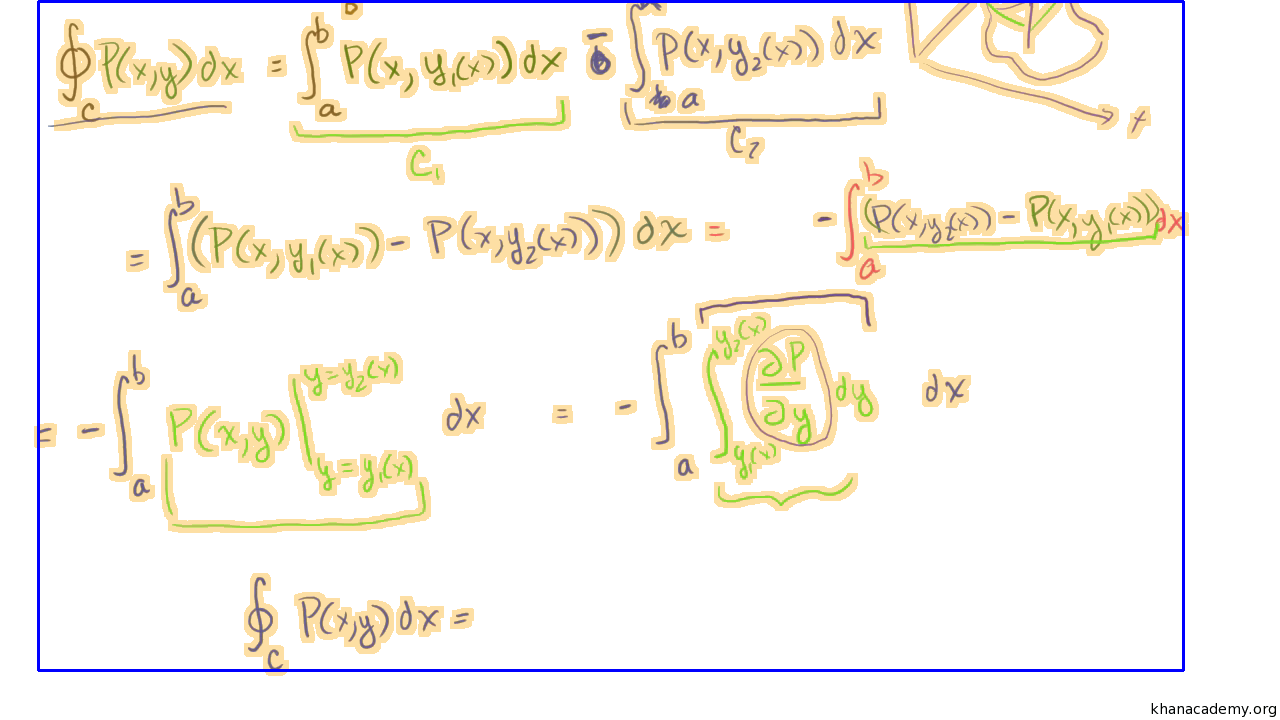 ∮_C P(x,y)dx = ∫_a^b P(x, y₁(x))dx - ∫_a P(x, y₂(x))dx
x
C₁
C₂
= ∫_a^b (P(x, y₁(x)) - P(x, y₂(x))) dx = - ∫_a^b (P(x, y₂(x)) - P(x, y₁(x))) dx
= - ∫_a^b P(x,y) |_{y = y₁(x)}^{y = y₂(x)} dx = - ∫_a^b ∫_{y₁(x)}^{y₂(x)} ∂P/∂y dy dx
∮_C P(x,y)dx =
khanacademy.org